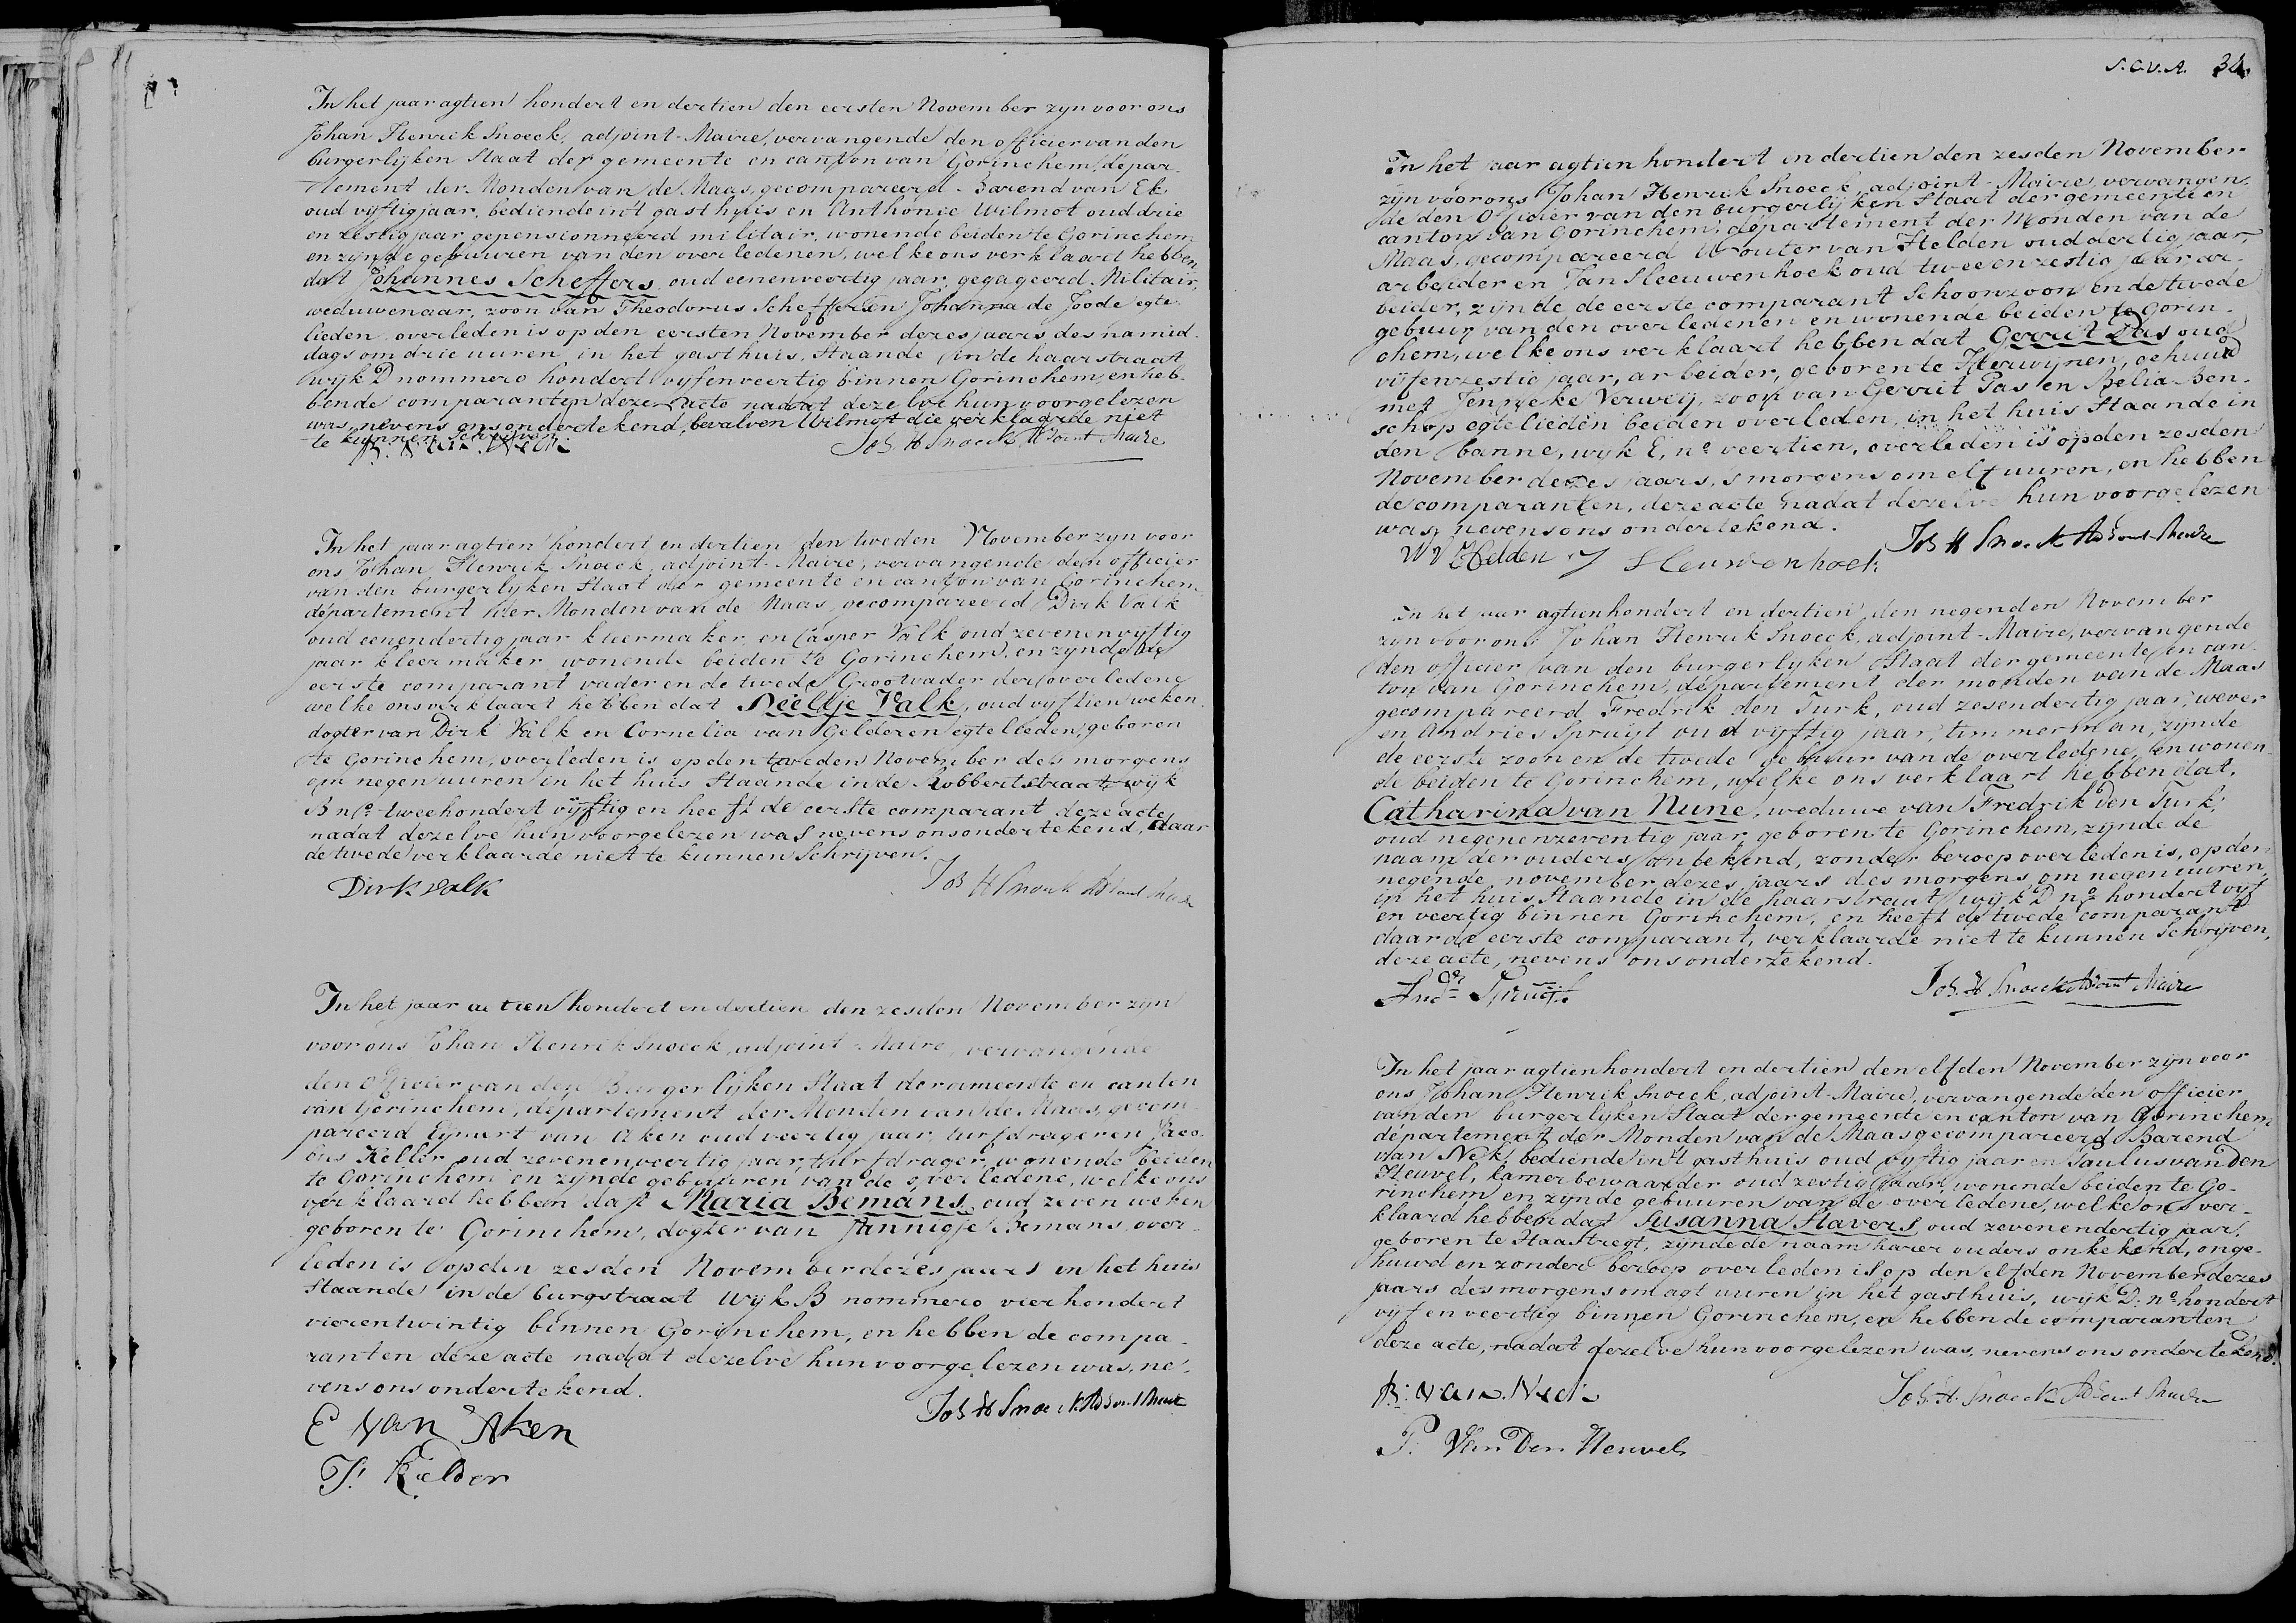 In het jaar agtien hondert en dertien den eersten November zyn voor ons
Johan Henrick Snoeck, adjoint-Maire, vervangende den officier van den
burgerlijken Staat der gemeente en canton van Gorinchem, depar-
tement der Monden van de Maas, gecompareerd Barend van Ek
oud vyftig jaar, bediende in 't gasthuis en Anthonie Wilmot oud drie
en zestig jaar gepensionneerd militair, wonende beiden te Gorinchem
en zynde gebuuren van den overledenen, welke ons verklaard hebben
dat Johannes Scheffers, oud eenenveertig jaar, gegageerd Militair,
weduwenaar, zoon van Theodorus Scheffers en Johanna de Joode egte
lieden overleden is op den eersten November dezes jaars des namid-
dags om drie uuren in het gasthuis, Staande in de haarstraat
wijk D nommero hondert vyfenveertig binnen Gorinchem, en heb-
bende comparanten deze acte nadat dezelve hun voorgelezen
was, nevens ons onderdekend, bevalven Wilmot die verklaarde niet
te kunnen Schrijven.
B. van Nek
Joh H Snoeck Adjoint-Maire
In het jaar agtien hondert en dertien den tweden November zyn voor
ons Johan Henrick Snoeck, adjoint-Maire, vervangende den officier
van den burgerlyken Staat der gemeente en canton van Gorinchem,
departement der Monden van de Maas, gecompareerd Dirk Valk
oud eenendertig jaar kleermaker en Casper Valk oud zevenenvyftig
jaar kleermaker, wonende beiden te Gorinchem, en zynde de
eerste comparant vader en de twede Grootvader der overledene
welke ons verklaart hebben dat Neeltje Valk, oud vyftien weken
dogter van Dirk Valk en Cornelia van Gelderen egtelieden, geboren
te Gorinchem, overleden is op den tweden November des morgens
om negen uuren in het huis Staande in de Robbertstraat wijk
B nº tweehondert vyftig en heeft de eerste comparant deze acte
nadat dezelve hun voorgelezen was nevens ons ondertekend, daar
de twede verklaarde niet te kunnen Schrijven.
Dirk valk
Joh H Snoeck Adjoint Maire
In het jaar agtien hondert en dertien den zesden November zijn
voor ons Johan Henrik Snoeck, adjoint-Maire, vervangende
den Officier van den Burgerlijken Staat der gemeente en canton
van Gorinchem, departement der Monden van de Maas, gecom-
pareerd Eijmert van Aken oud veertig jaar, turfdrager en Jaco-
bus Keller oud zevenenveertig jaar, turfdrager, wonende beiden
te Gorinchem en zynde gebuuren van de overledene, welke ons
verklaard hebben dat Maria Bemans, oud zeven weken
geboren te Gorinchem, dogter van Jannigje Bemans, over-
leden is op den zesden November dezes jaars in het huis
Staande in de burgstraat wijk B nommero vierhondert
vierentwintig binnen Gorinchem, en hebben de compa-
ranten deze acte nadat dezelve hun voorgelezen was, ne-
vens ons ondertekend.
E van Aken
Joh H Snoeck Adjoint Maire
J. Kelder
S.G.V.A. 34
In het jaar agtien hondert en dertien den zesden November
zijn voor ons Johan Henrick Snoeck, adjoint-Maire, vervangen-
de den Officier van den burgerlijken Staat der gemeente en
canton van Gorinchem, departement der Monden van de
Maas, gecompareerd Wouter van Helden oud dertig jaar,
arbeider en Jan Sleeuwenhoek oud tweeenzestig jaar ar-
beider, zijnde de eerste comparant Schoonzoon en de twede
gebuur van den overledenen en wonende beiden te Gorin-
chem, welke ons verklaart hebben dat Gerrit Pas oud
vijfenzestig jaar, arbeider, geboren te Herwijnen, gehuwd
met Jenneke Verweij, zoon van Gerrit Pas en Belia Ben-
schop egtelieden beiden overleden, in het huis Staande in
den banne, wijk E, nº veertien, overleden is op den zesden
November dezes jaars, 's morgens om elf uuren, en hebben
de comparanten, deze acte nadat dezelve hun voorgelezen
was, nevens ons ondertekend.
W V Helden J Sleuwenhoek
Joh H Snoeck Adjoint-Maire
In het jaar agtienhondert en dertien den negenden November
zyn voor ons Johan Henrik Snoeck, adjoint-Maire, vervangende
den officier van den burgerlyken Staat der gemeente en can-
ton van Gorinchem, departement der monden van de Maas
gecompareerd Fredrik den Turk, oud zesendertig jaar, wever
en Andries Spruyt oud vyftig jaar, timmerman, zynde
de eerste zoon en de twede gebuur van de overledene, en wonen-
de beiden te Gorinchem, welke ons verklaart hebben dat,
Catharina van Nune, weduwe van Fredrik den Turk,
oud negenenzeventig jaar geboren te Gorinchem, zynde de
naam der ouders onbekend, zonder beroep overleden is, op den
negende november dezes jaars des morgens om negen uuren,
in het huis Staande in de haarstraat wijk D nº hondert vyf
en veertig binnen Gorinchem, en heeft de twede comparant
daar de eerste comparant, verklaarde niet te kunnen Schrijven,
deze acte, nevens ons ondertekend.
Andˢ Spruijt
Joh. H Snoeck Adjoint Maire
In het jaar agtienhondert en dertien den elfden November zyn voor
ons Johan Henrik Snoeck, adjoint-Maire, vervangende den officier
van den burgerlyken Staat der gemeente en canton van Gorinchem
departement der Monden van de Maas gecompareerd Barend
van Nek, bediende in 't gasthuis oud vyftig jaar en Paulus van Den
Heuvel, kamerbewaarder oud zestig jaar, wonende beiden te Go-
rinchem en zynde gebuuren van de overledene, welke ons ver-
klaard hebben dat Susanna Stavers oud zevenendertig jaar,
geboren te Haastregt, zijnde de naam harer ouders onbekend, onge-
huwd en zonder beroep overleden is op den elfden November dezes
jaars des morgens om agt uuren in het gasthuis, wijk D: nº hondert
vyf en veertig binnen Gorinchem, en hebben de comparanten
deze acte, nadat dezelve hun voorgelezen was, nevens ons ondertekend.
B: van Nek
Joh. H. Snoeck Adjoint Maire
P. Van Den Heuvel